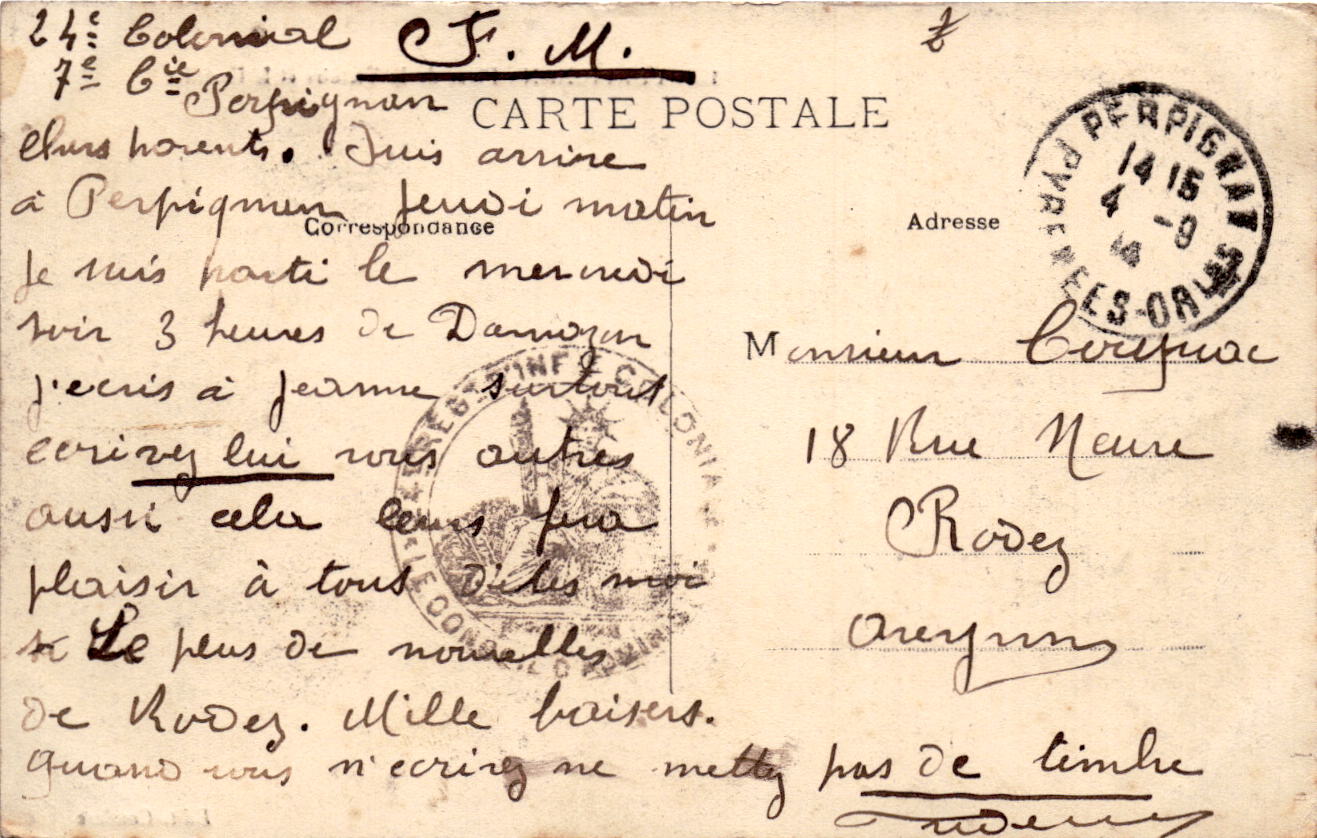 24e Colonial F. M.
7e Cie
Perpignan
CARTE POSTALE
Chers parents. Suis arrive
à Perpignan Jeudi matin
Correspondance
Adresse
je suis parti le mercredi
soir 3 heures de Damazan
j'ecris à Jeanne surtout
ecrivez lui vous autres
aussi cela leurs fera
plaisir à tous Dites moi
Le plus de nouvelles
de Rodez. Mille baisers.
Quand vous m'ecrirez ne mettez pas de timbre
Monsieur
18 Rue Neuve
Rodez
Aveyron
PERPIGNAN
14 15
4 -9
PYRENEES-ORLES
REGT D'INFIE COLONIALE
LE CONSEIL D'ADMINISTRATION